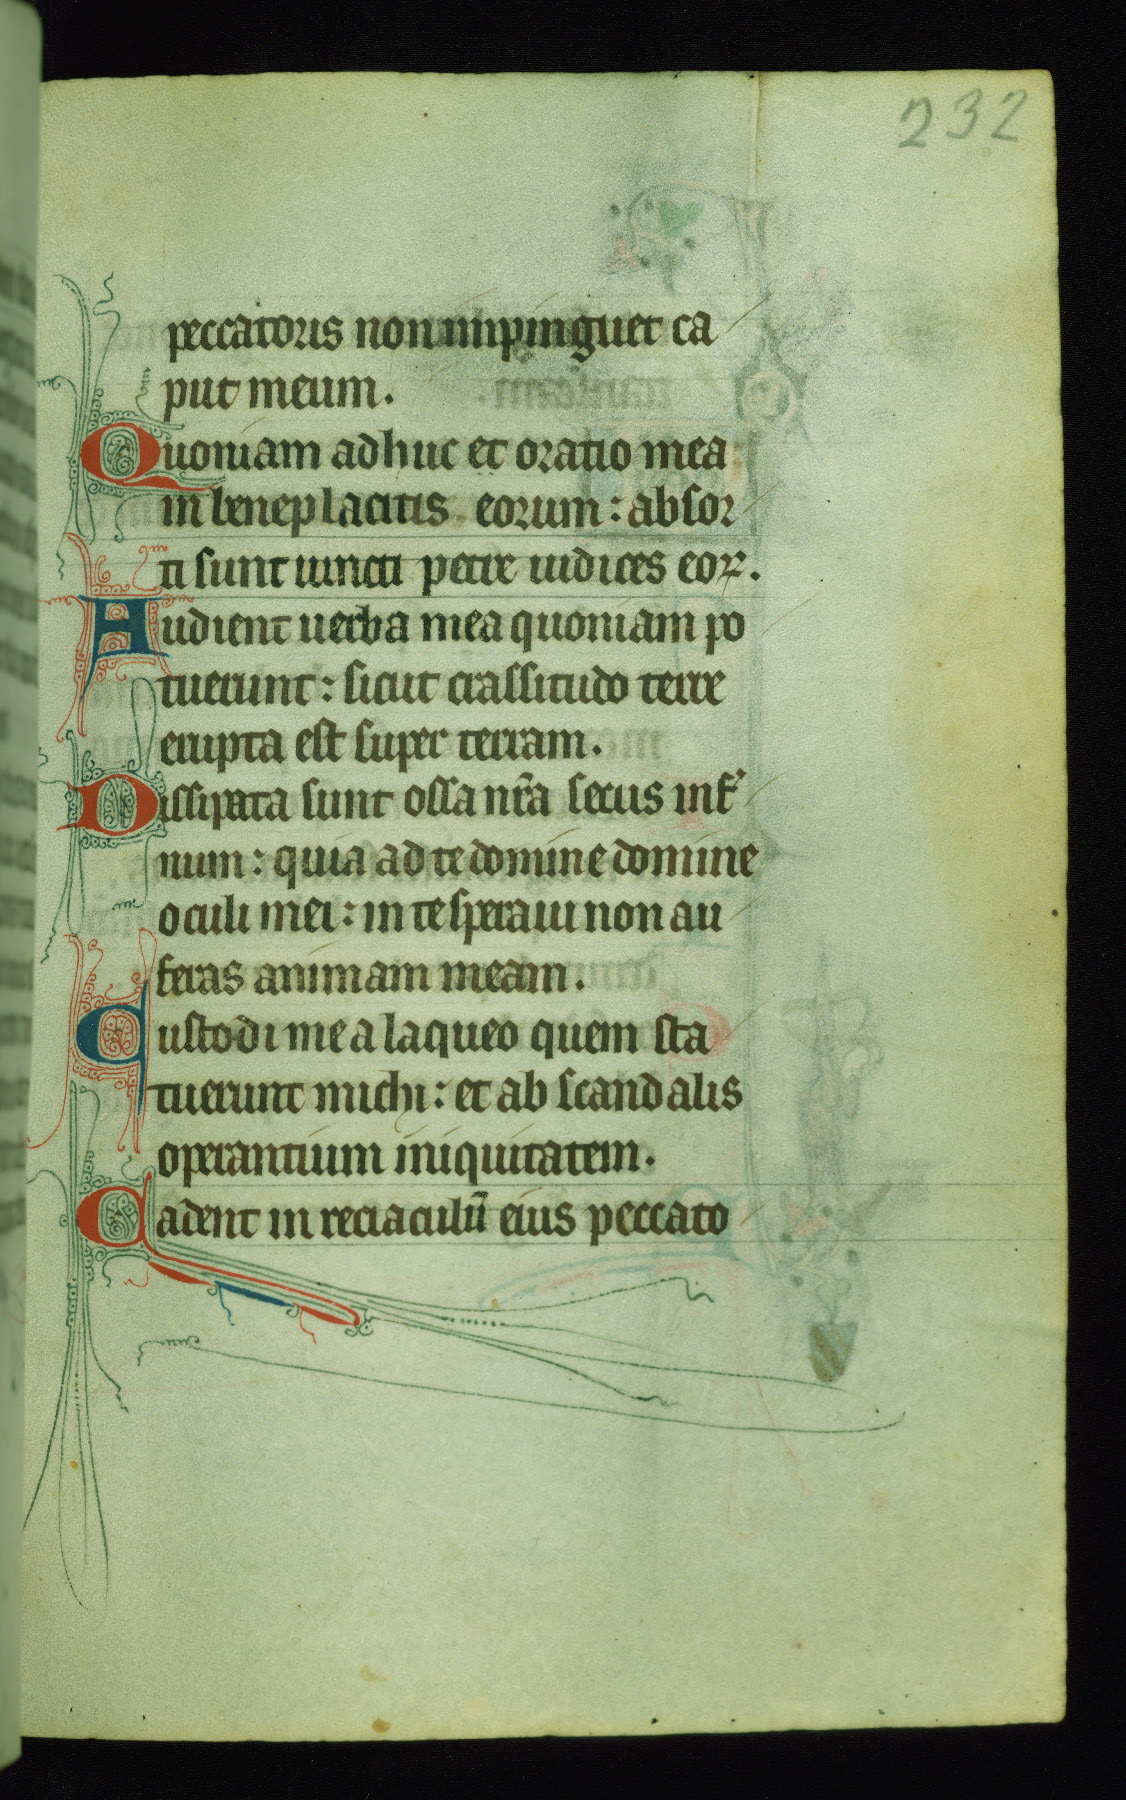 232
peccatoris non impinguet ca
put meum.
Quoniam adhuc et oratio mea
in beneplacitis eorum: absor
ti sunt iuncti petre iudices eoꝝ.
Audient uerba mea quoniam po
tuerunt: sicut crassitudo terre
erupta est super terram.
Dissipata sunt ossa nr̄a secus inf̕
num: quia ad te domine domine
oculi mei: in te speraui non au
feras animam meam.
Custodi me a laqueo quem sta
tuerunt michi: et ab scandalis
operantium iniquitatem.
Cadent in reciaculū eius peccato